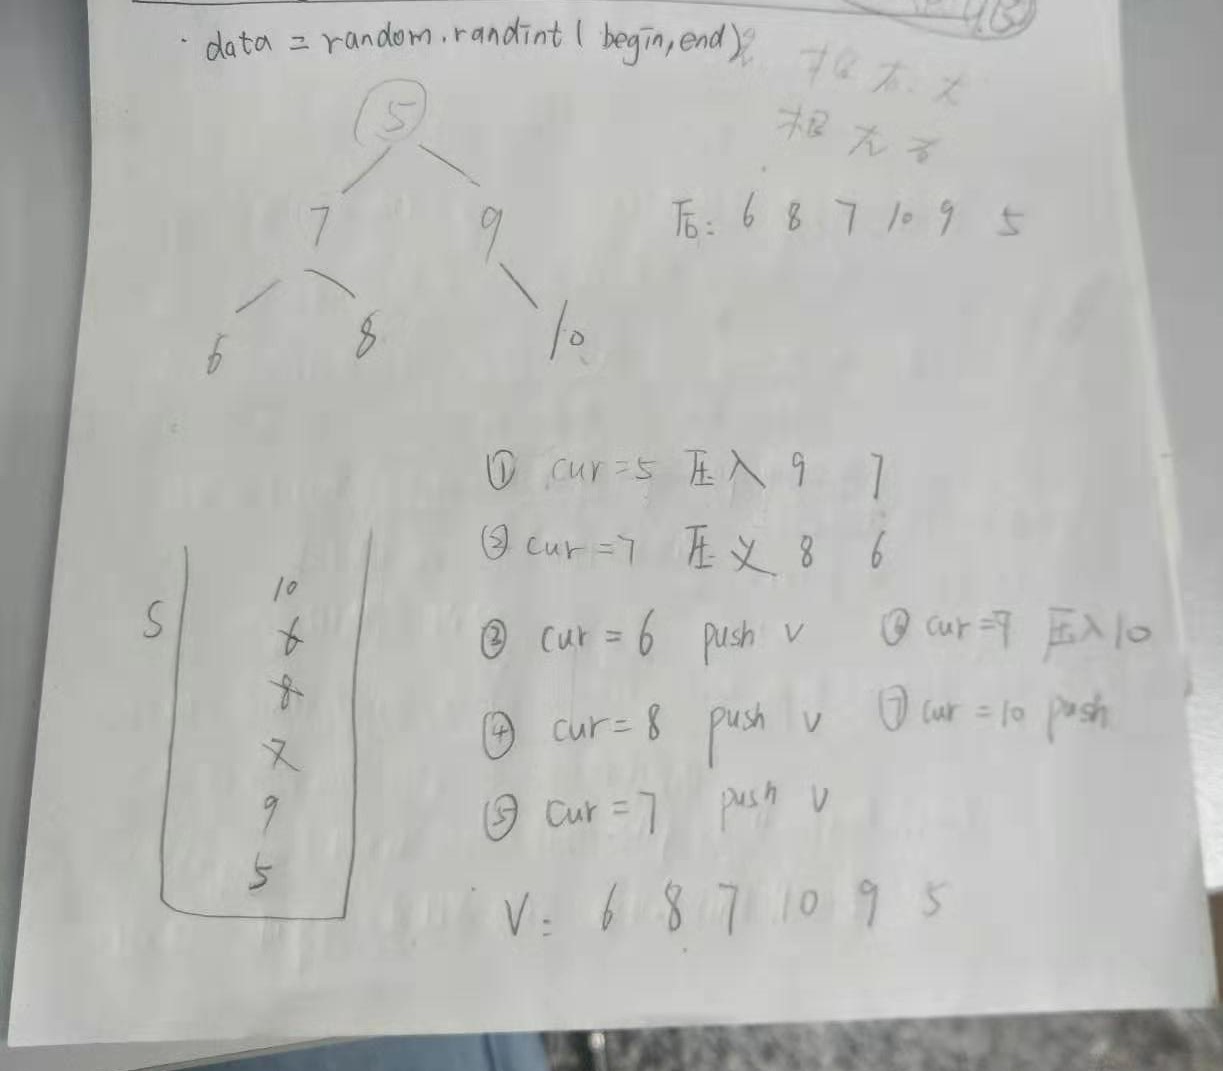 · data = random.randint ( begin, end )
5
7 9
6 8 10
后: 6 8 7 10 9 5
① cur = 5 压入 9 7
② cur = 7 压入 8 6
③ cur = 6 push v
④ cur = 8 push v
⑤ cur = 7 push v
⑥ cur = 9 压入 10
⑦ cur = 10 push
S
10
6
8
7
9
5
V: 6 8 7 10 9 5